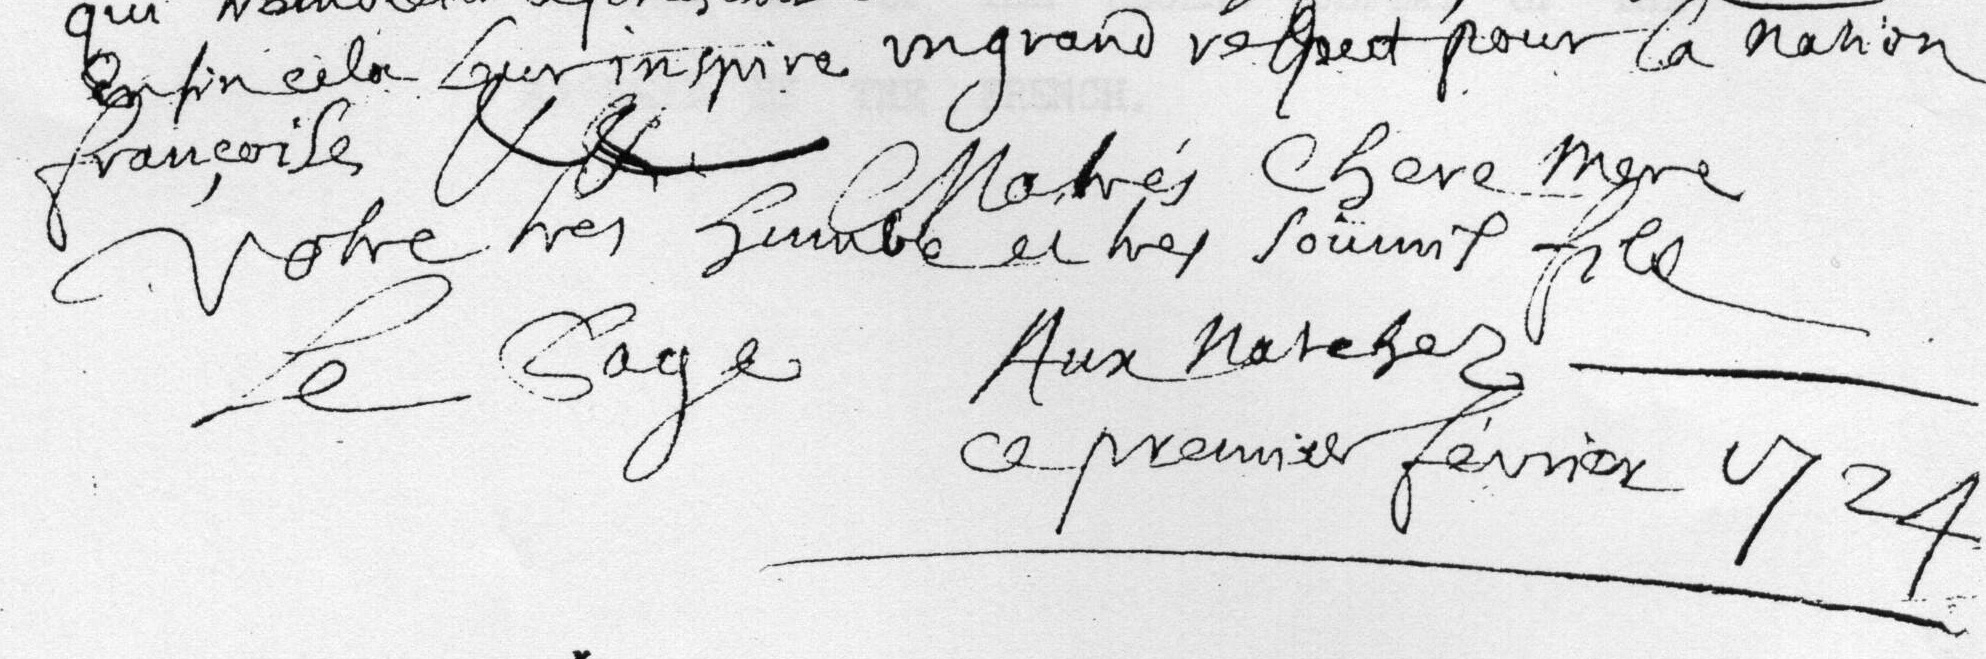 qui
Enfin cela leur inspire un grand respect pour la nation
françoise
Ma trés Chere Mere
Votre tres humble et tres soûmis fils
Le Page
Aux Natchez
ce premier février 1724